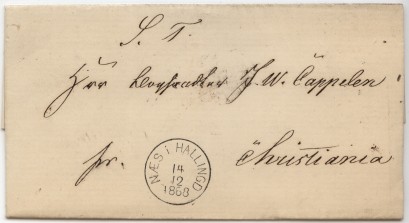 S. T.
Herr Boghandler J. W. Cappelen
pr.
Christiania
NÆS i HALLINGD
14
12
1868